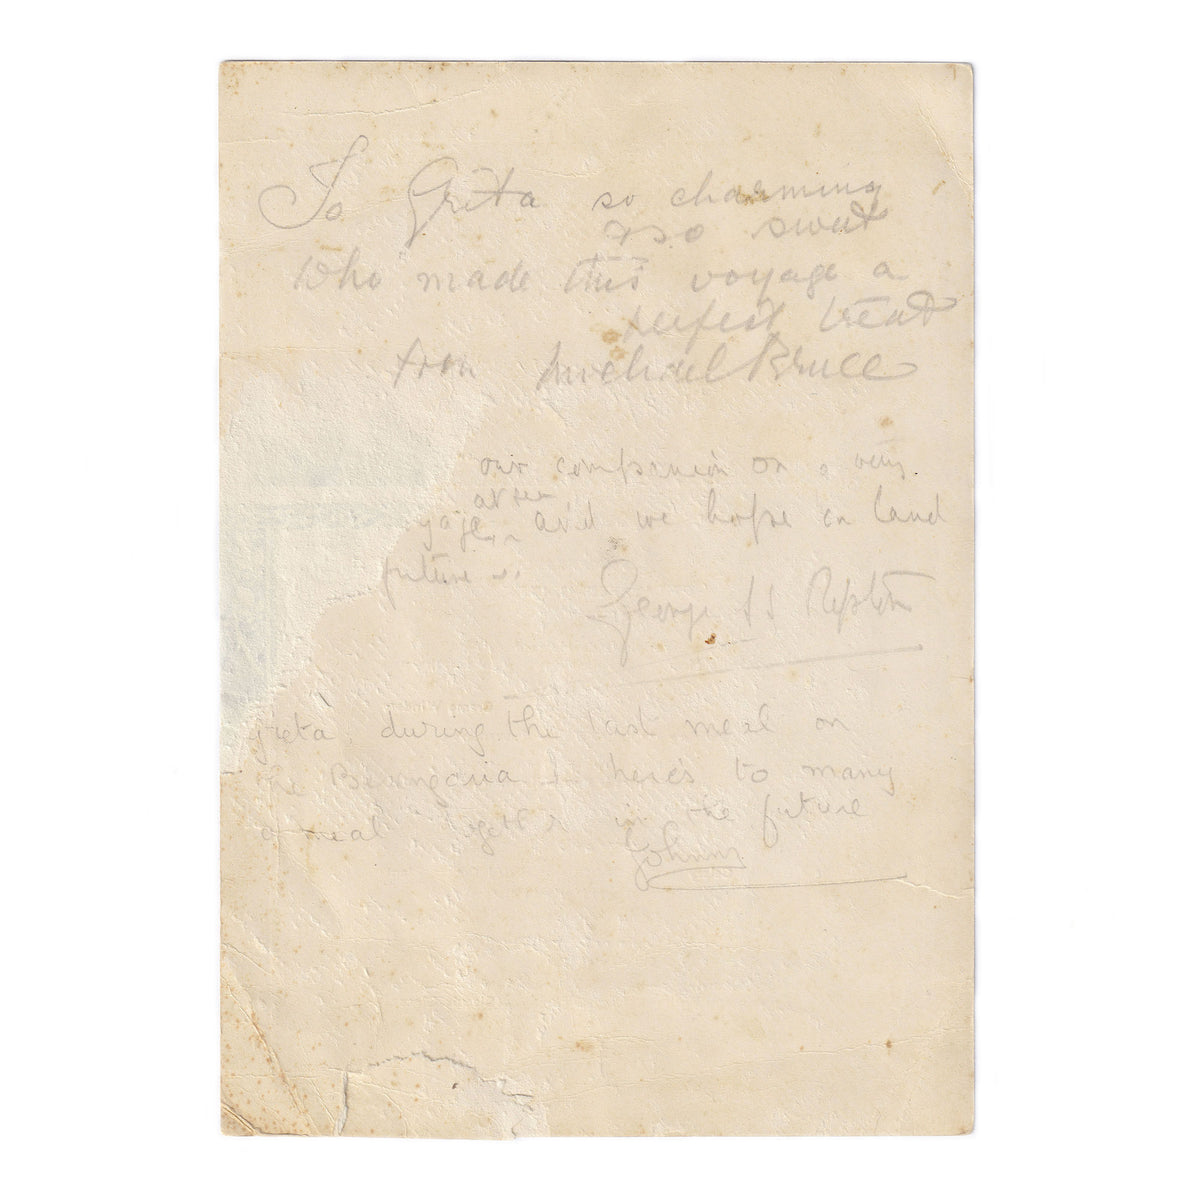 To Greta so charming
& so sweet
who made this voyage a
perfect treat
from Michael Bruce
our companion on a very
at sea
yage and we hope on land
future
George S S Repton
Greta during the last meal on
the Berengaria & here's to many
a meal together in the future
Johnny